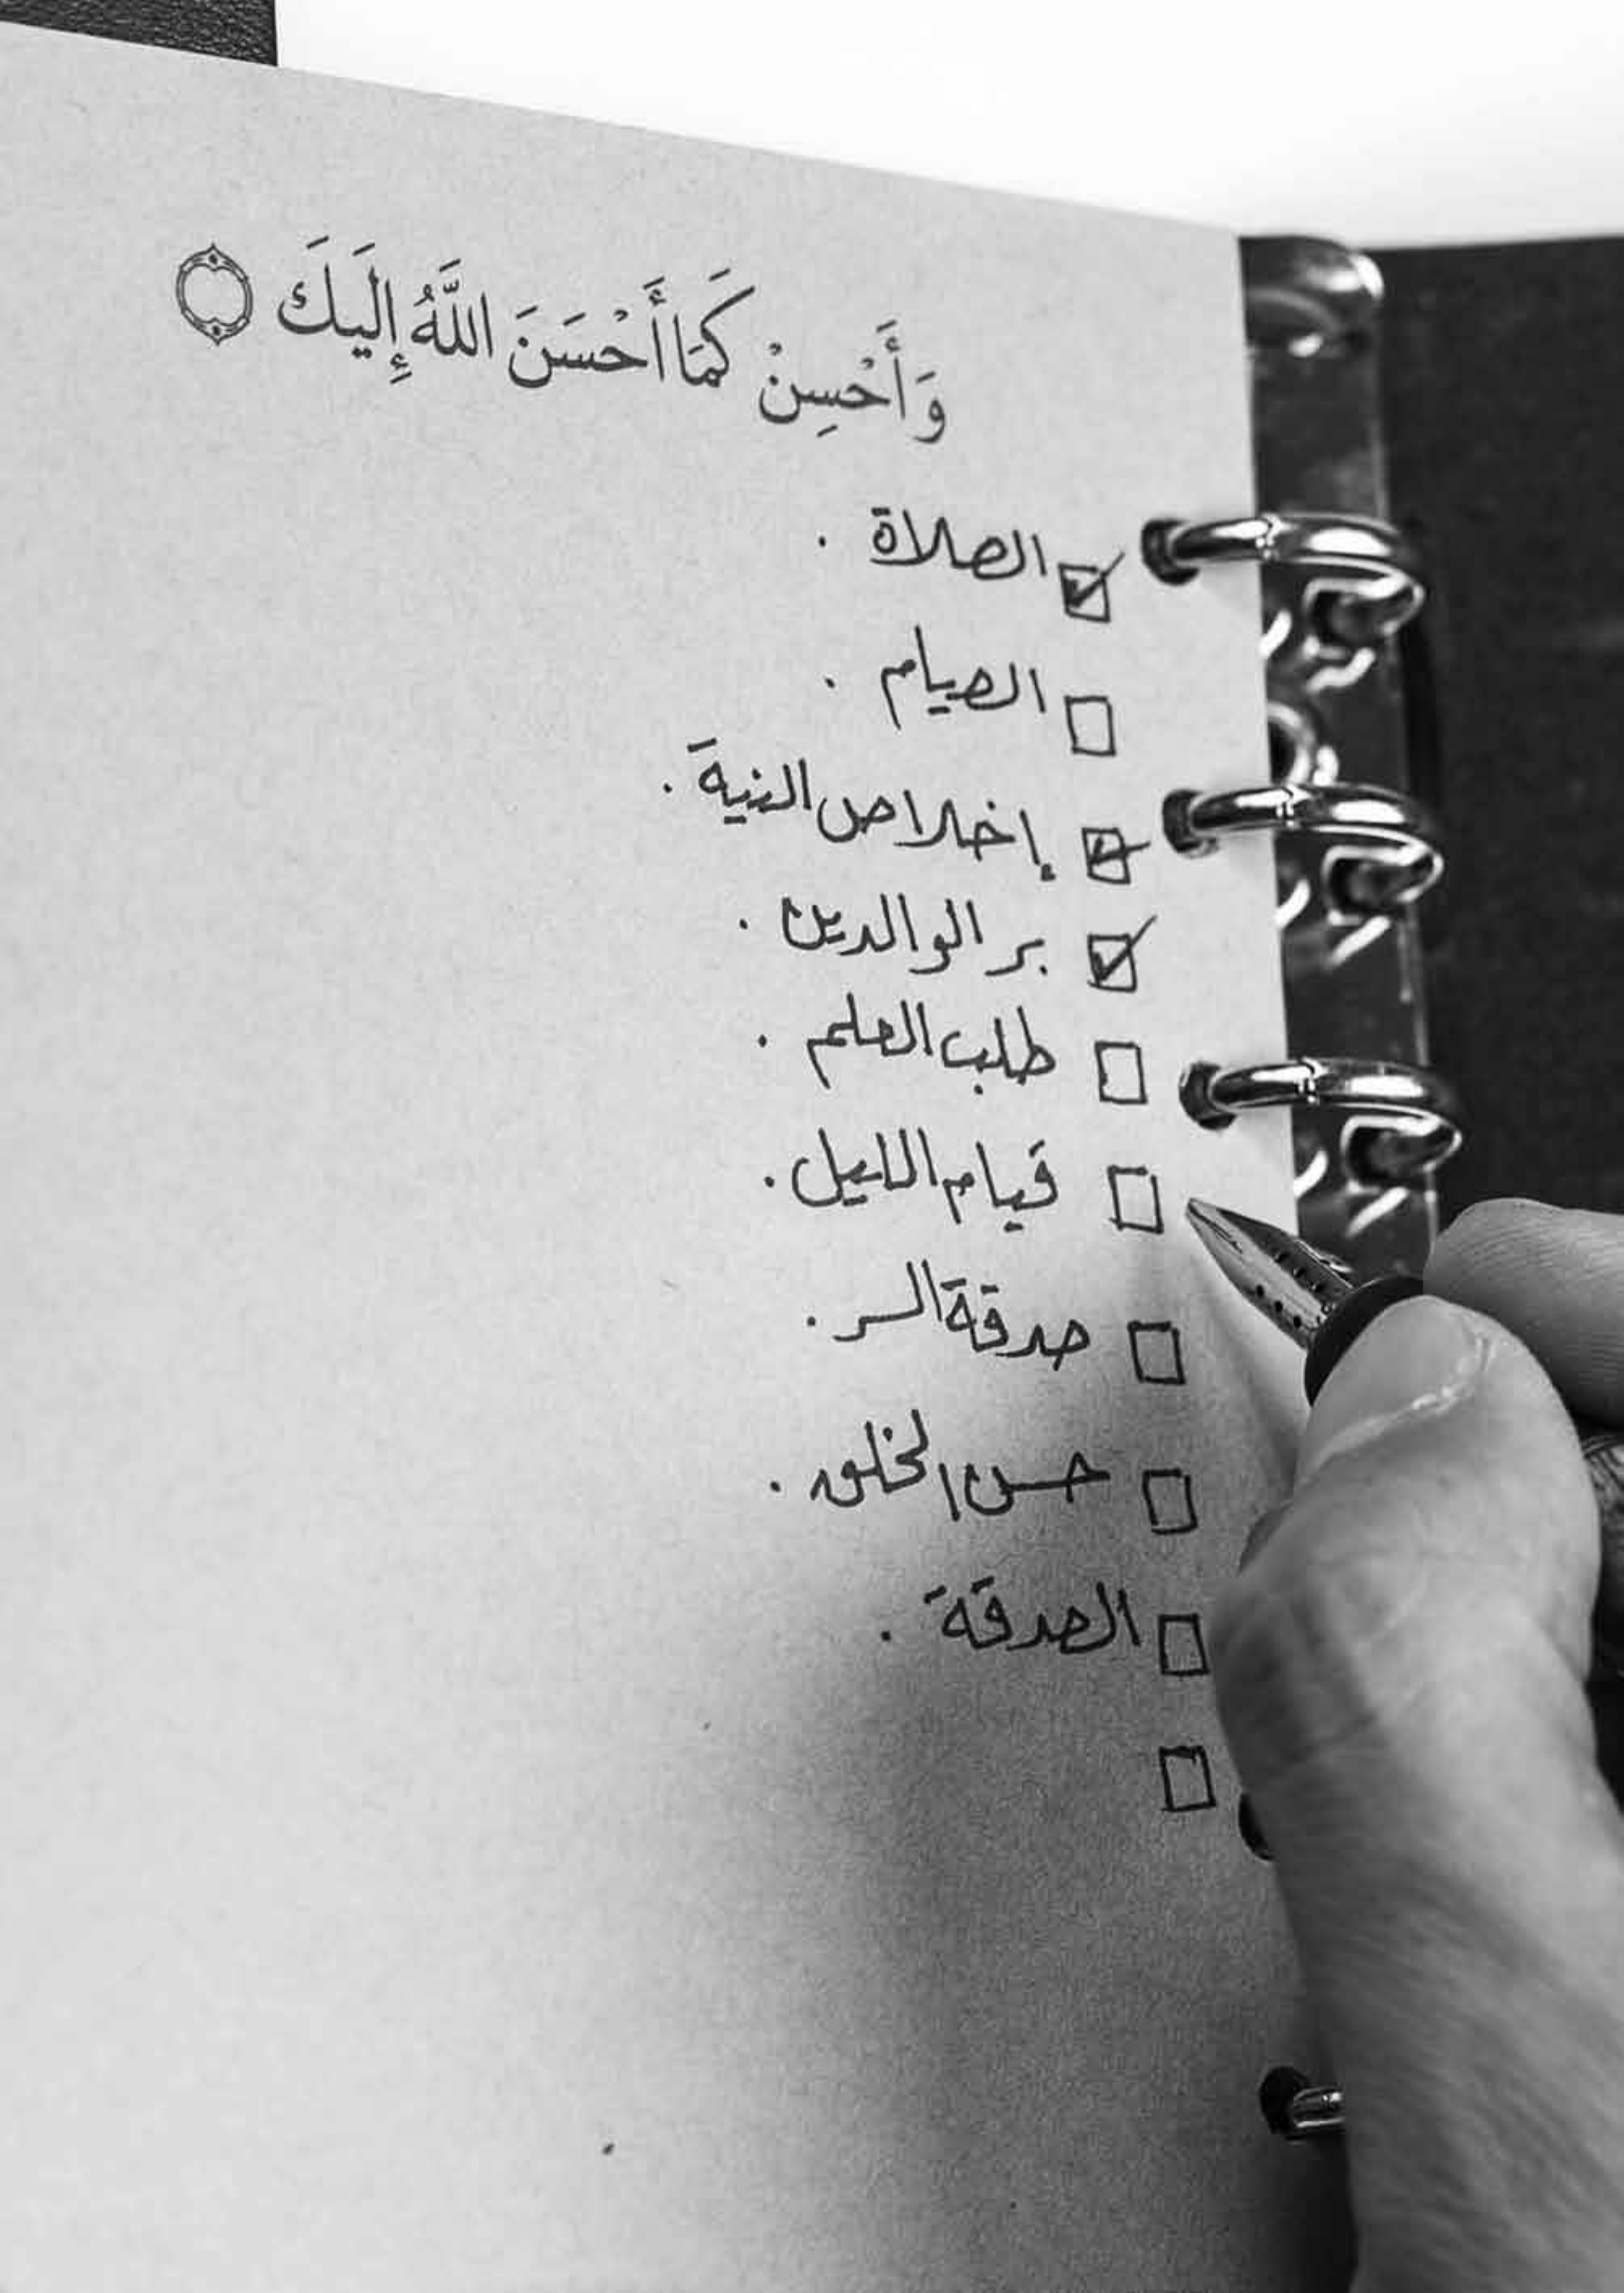 وَأَحْسِنْ كَمَا أَحْسَنَ اللَّهُ إِلَيْكَ
الصلاة .
الصيام .
إخلاص النية .
بر الوالدين .
طلب العلم .
قيام الليل .
صدقة السر .
حسن الخلق .
الصدقة .